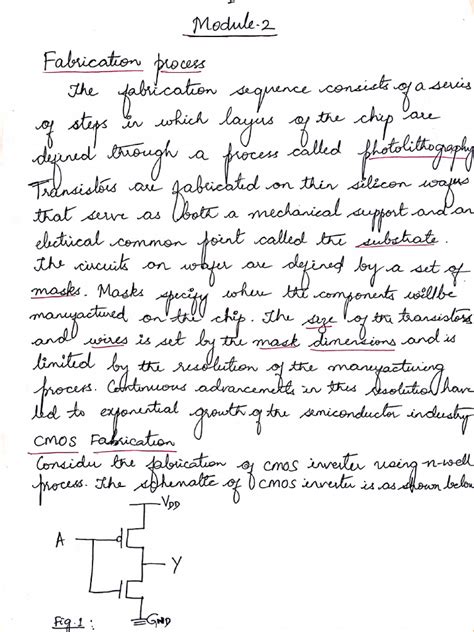 Module-2
Fabrication process
The fabrication sequence consists of a series
of steps in which layers of the chip are
defined through a process called photolithography
Transistors are fabricated on thin silicon wafers
that serve as both a mechanical support and an
electrical common point called the substrate.
The circuits on wafer are defined by a set of
masks. Masks specify where the components will be
manufactured on the chip. The size of the transistors
and wires is set by the mask dimensions and is
limited by the resolution of the manufacturing
process. Continuous advancements in this resolution have
led to exponential growth of the semiconductor industry
CMOS Fabrication
Consider the fabrication of CMOS inverter using n-well
process. The schematic of CMOS inverter is as shown below
VDD
A
Y
GND
Fig.1: